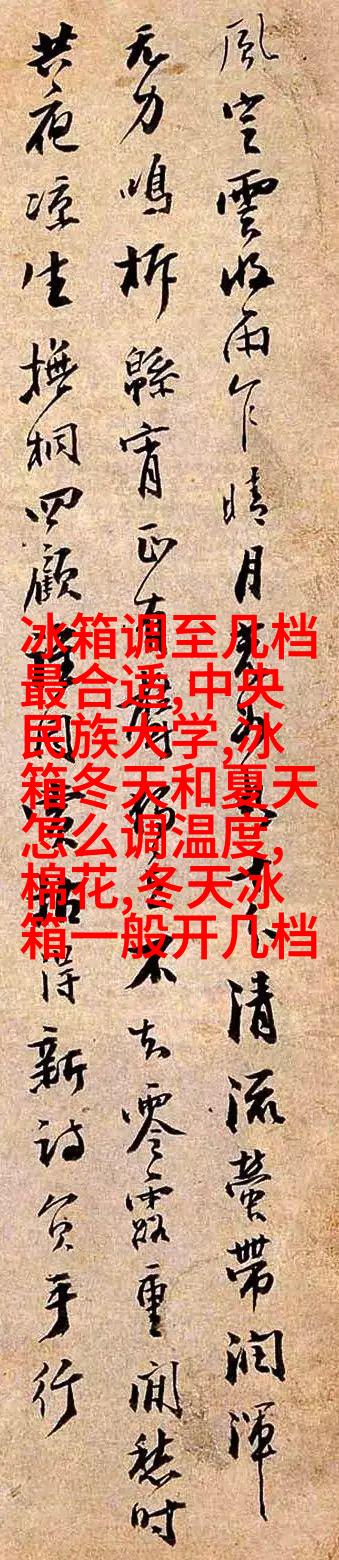 風定雲收雨乍晴月清流螢帶潤渾
无力鳴柝縣宵正有不知零露重閒愁時
共夜凉生撫桐四顧得新詩負手行
冰箱调至几档
最合适,中央
民族大学,冰
箱冬天和夏天
怎么调温度,
棉花,冬天冰
箱一般开几档